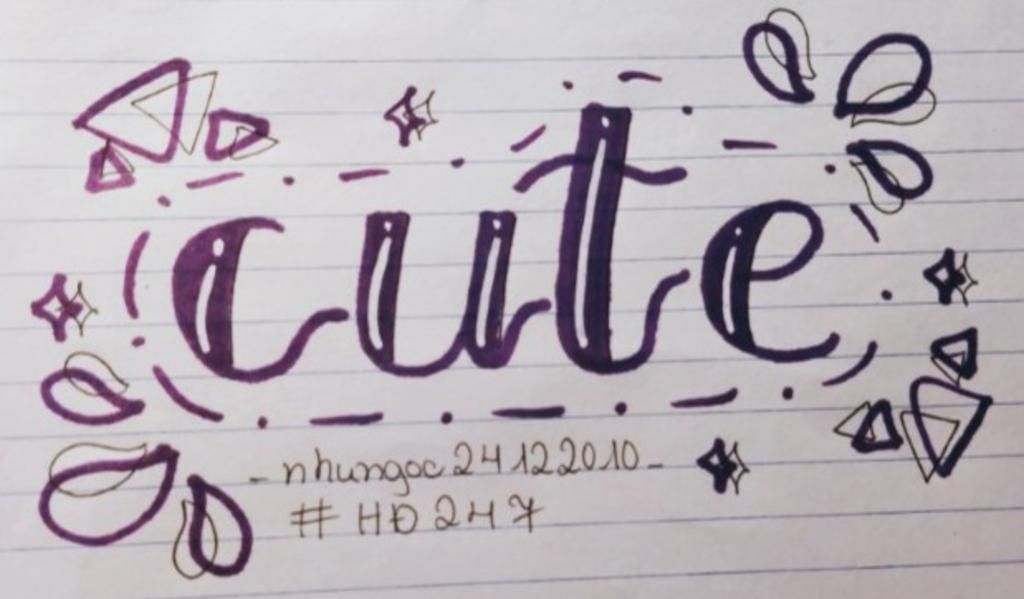 cute
- nhungoc24122010 -
# HĐ247